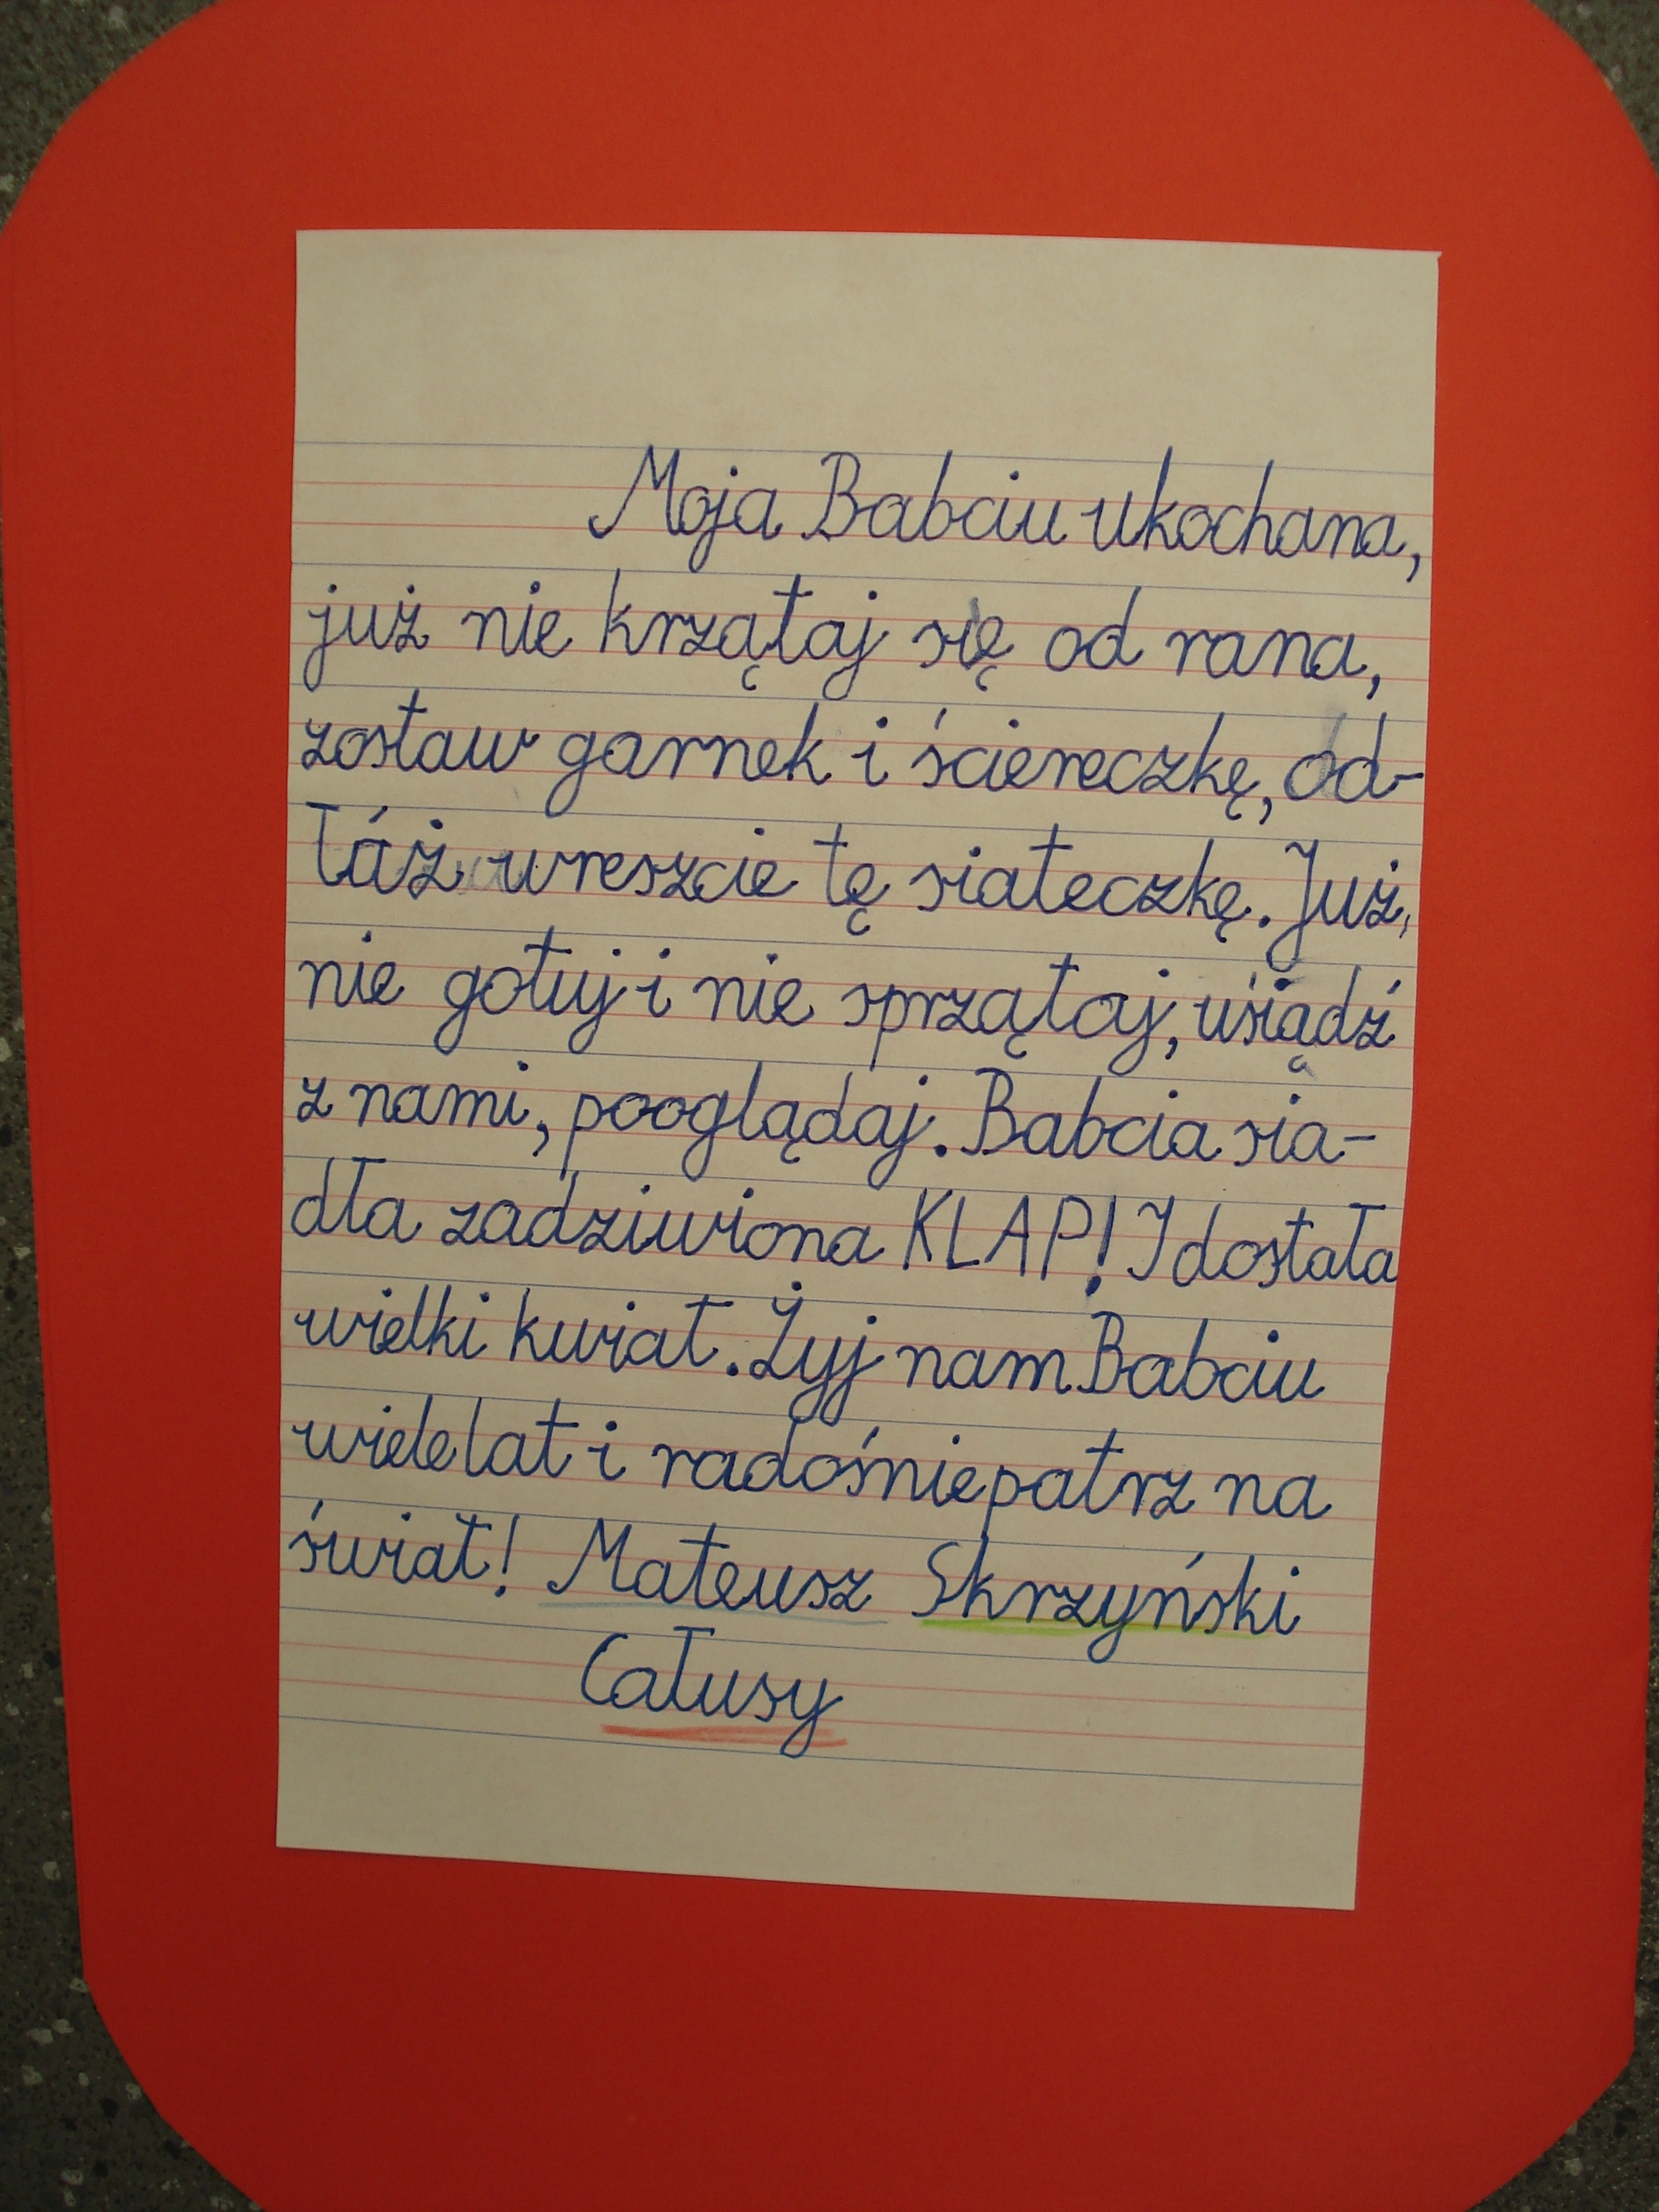 Moja Babciu ukochana,
już nie krzątaj się od rana,
zostaw garnek i ściereczkę, od-
łóż wreszcie tę siateczkę. Już,
nie gotuj i nie sprzątaj, usiądź
z nami, pooglądaj. Babcia sia-
dła zadziwiona KLAP! I dostała
wielki kwiat. Żyj nam Babciu
wiele lat i radośnie patrz na
świat! Mateusz Skrzyński
Całusy